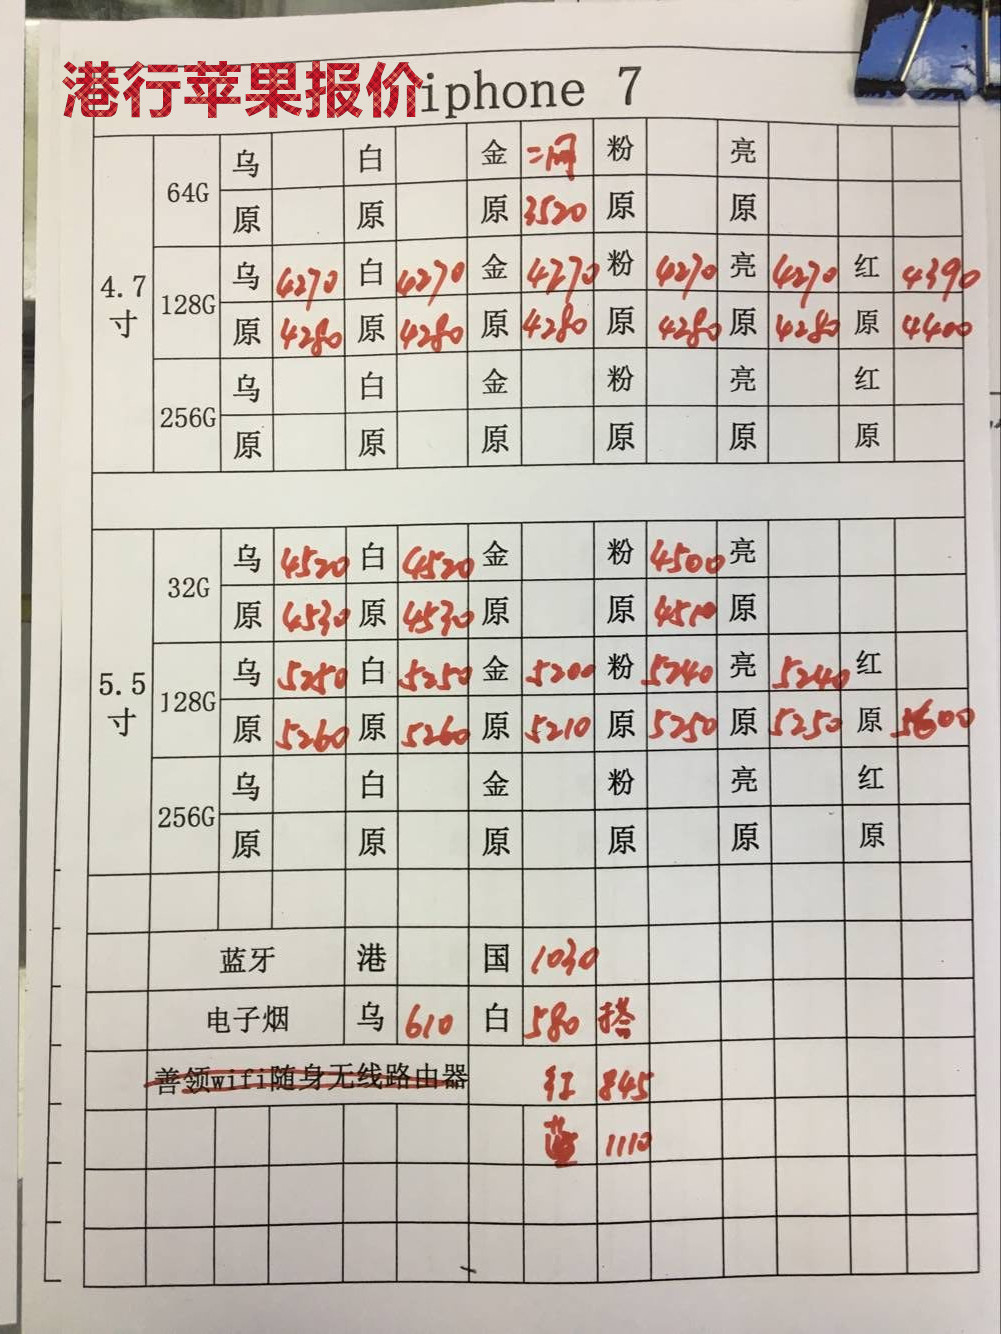 港行苹果报价 iphone 7
4.7寸 64G 乌 白 金 二网 粉 亮
原 原 原 3520 原 原
128G 乌 4270 白 4270 金 4270 粉 4270 亮 4270 红 4390
原 4280 原 4280 原 4280 原 4280 原 4280 原 4400
256G 乌 白 金 粉 亮 红
原 原 原 原 原 原
5.5寸 32G 乌 4520 白 4520 金 粉 4500 亮
原 4530 原 4530 原 原 4510 原
128G 乌 5250 白 5250 金 5200 粉 5240 亮 5240 红
原 5260 原 5260 原 5210 原 5250 原 5250 原 5600
256G 乌 白 金 粉 亮 红
原 原 原 原 原 原
蓝牙 港 国 1030
电子烟 乌 610 白 580 搭
善领wifi随身无线路由器 红 845
蓝 1110